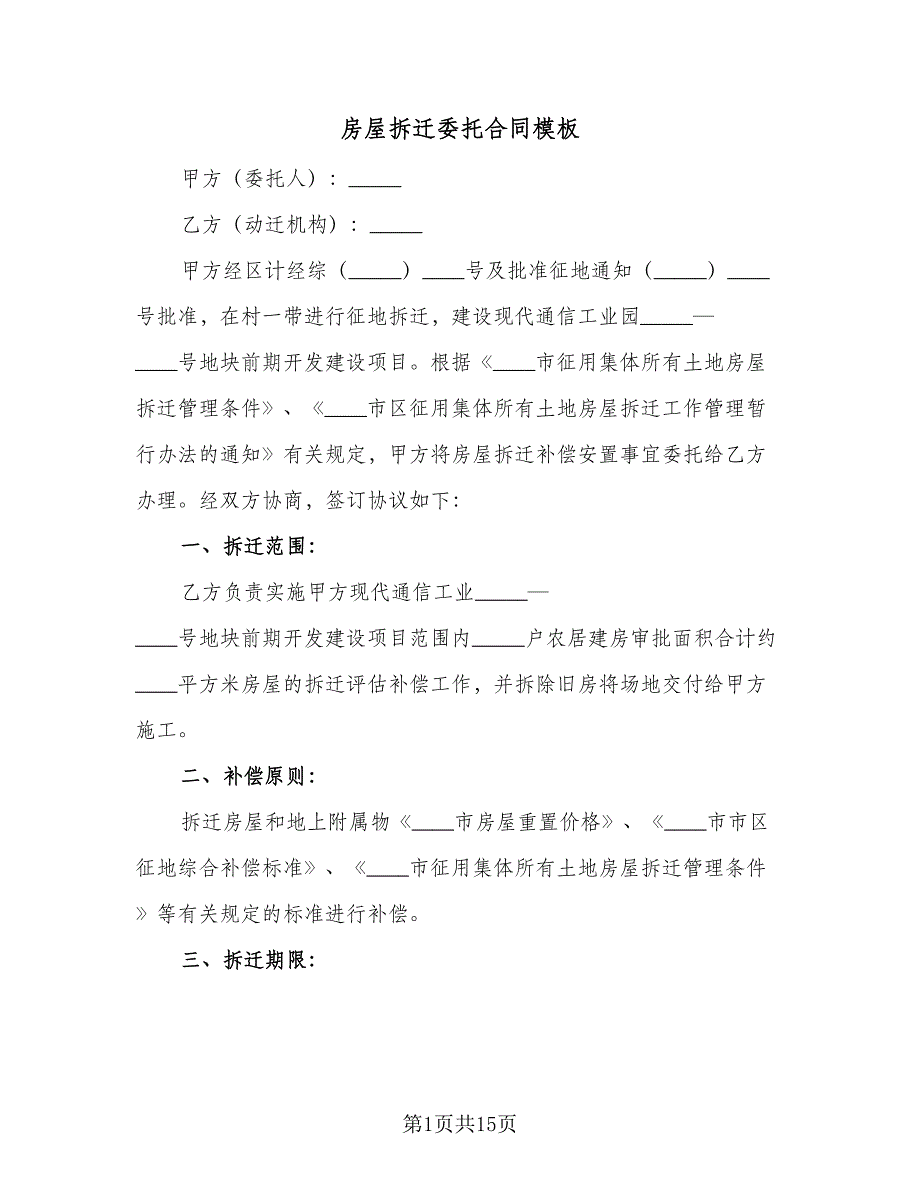 房屋拆迁委托合同模板
甲方（委托人）：_____
乙方（动迁机构）：_____
甲方经区计经综（_____）____号及批准征地通知（_____）____
号批准，在村一带进行征地拆迁，建设现代通信工业园_____—
____号地块前期开发建设项目。根据《____市征用集体所有土地房屋
拆迁管理条件》、《____市区征用集体所有土地房屋拆迁工作管理暂
行办法的通知》有关规定，甲方将房屋拆迁补偿安置事宜委托给乙方
办理。经双方协商，签订协议如下：
一、拆迁范围：
乙方负责实施甲方现代通信工业_____—
____号地块前期开发建设项目范围内_____户农居建房审批面积合计约
____平方米房屋的拆迁评估补偿工作，并拆除旧房将场地交付给甲方
施工。
二、补偿原则：
拆迁房屋和地上附属物《____市房屋重置价格》、《____市市区
征地综合补偿标准》、《____市征用集体所有土地房屋拆迁管理条件
》等有关规定的标准进行补偿。
三、拆迁期限：
第1页共15页